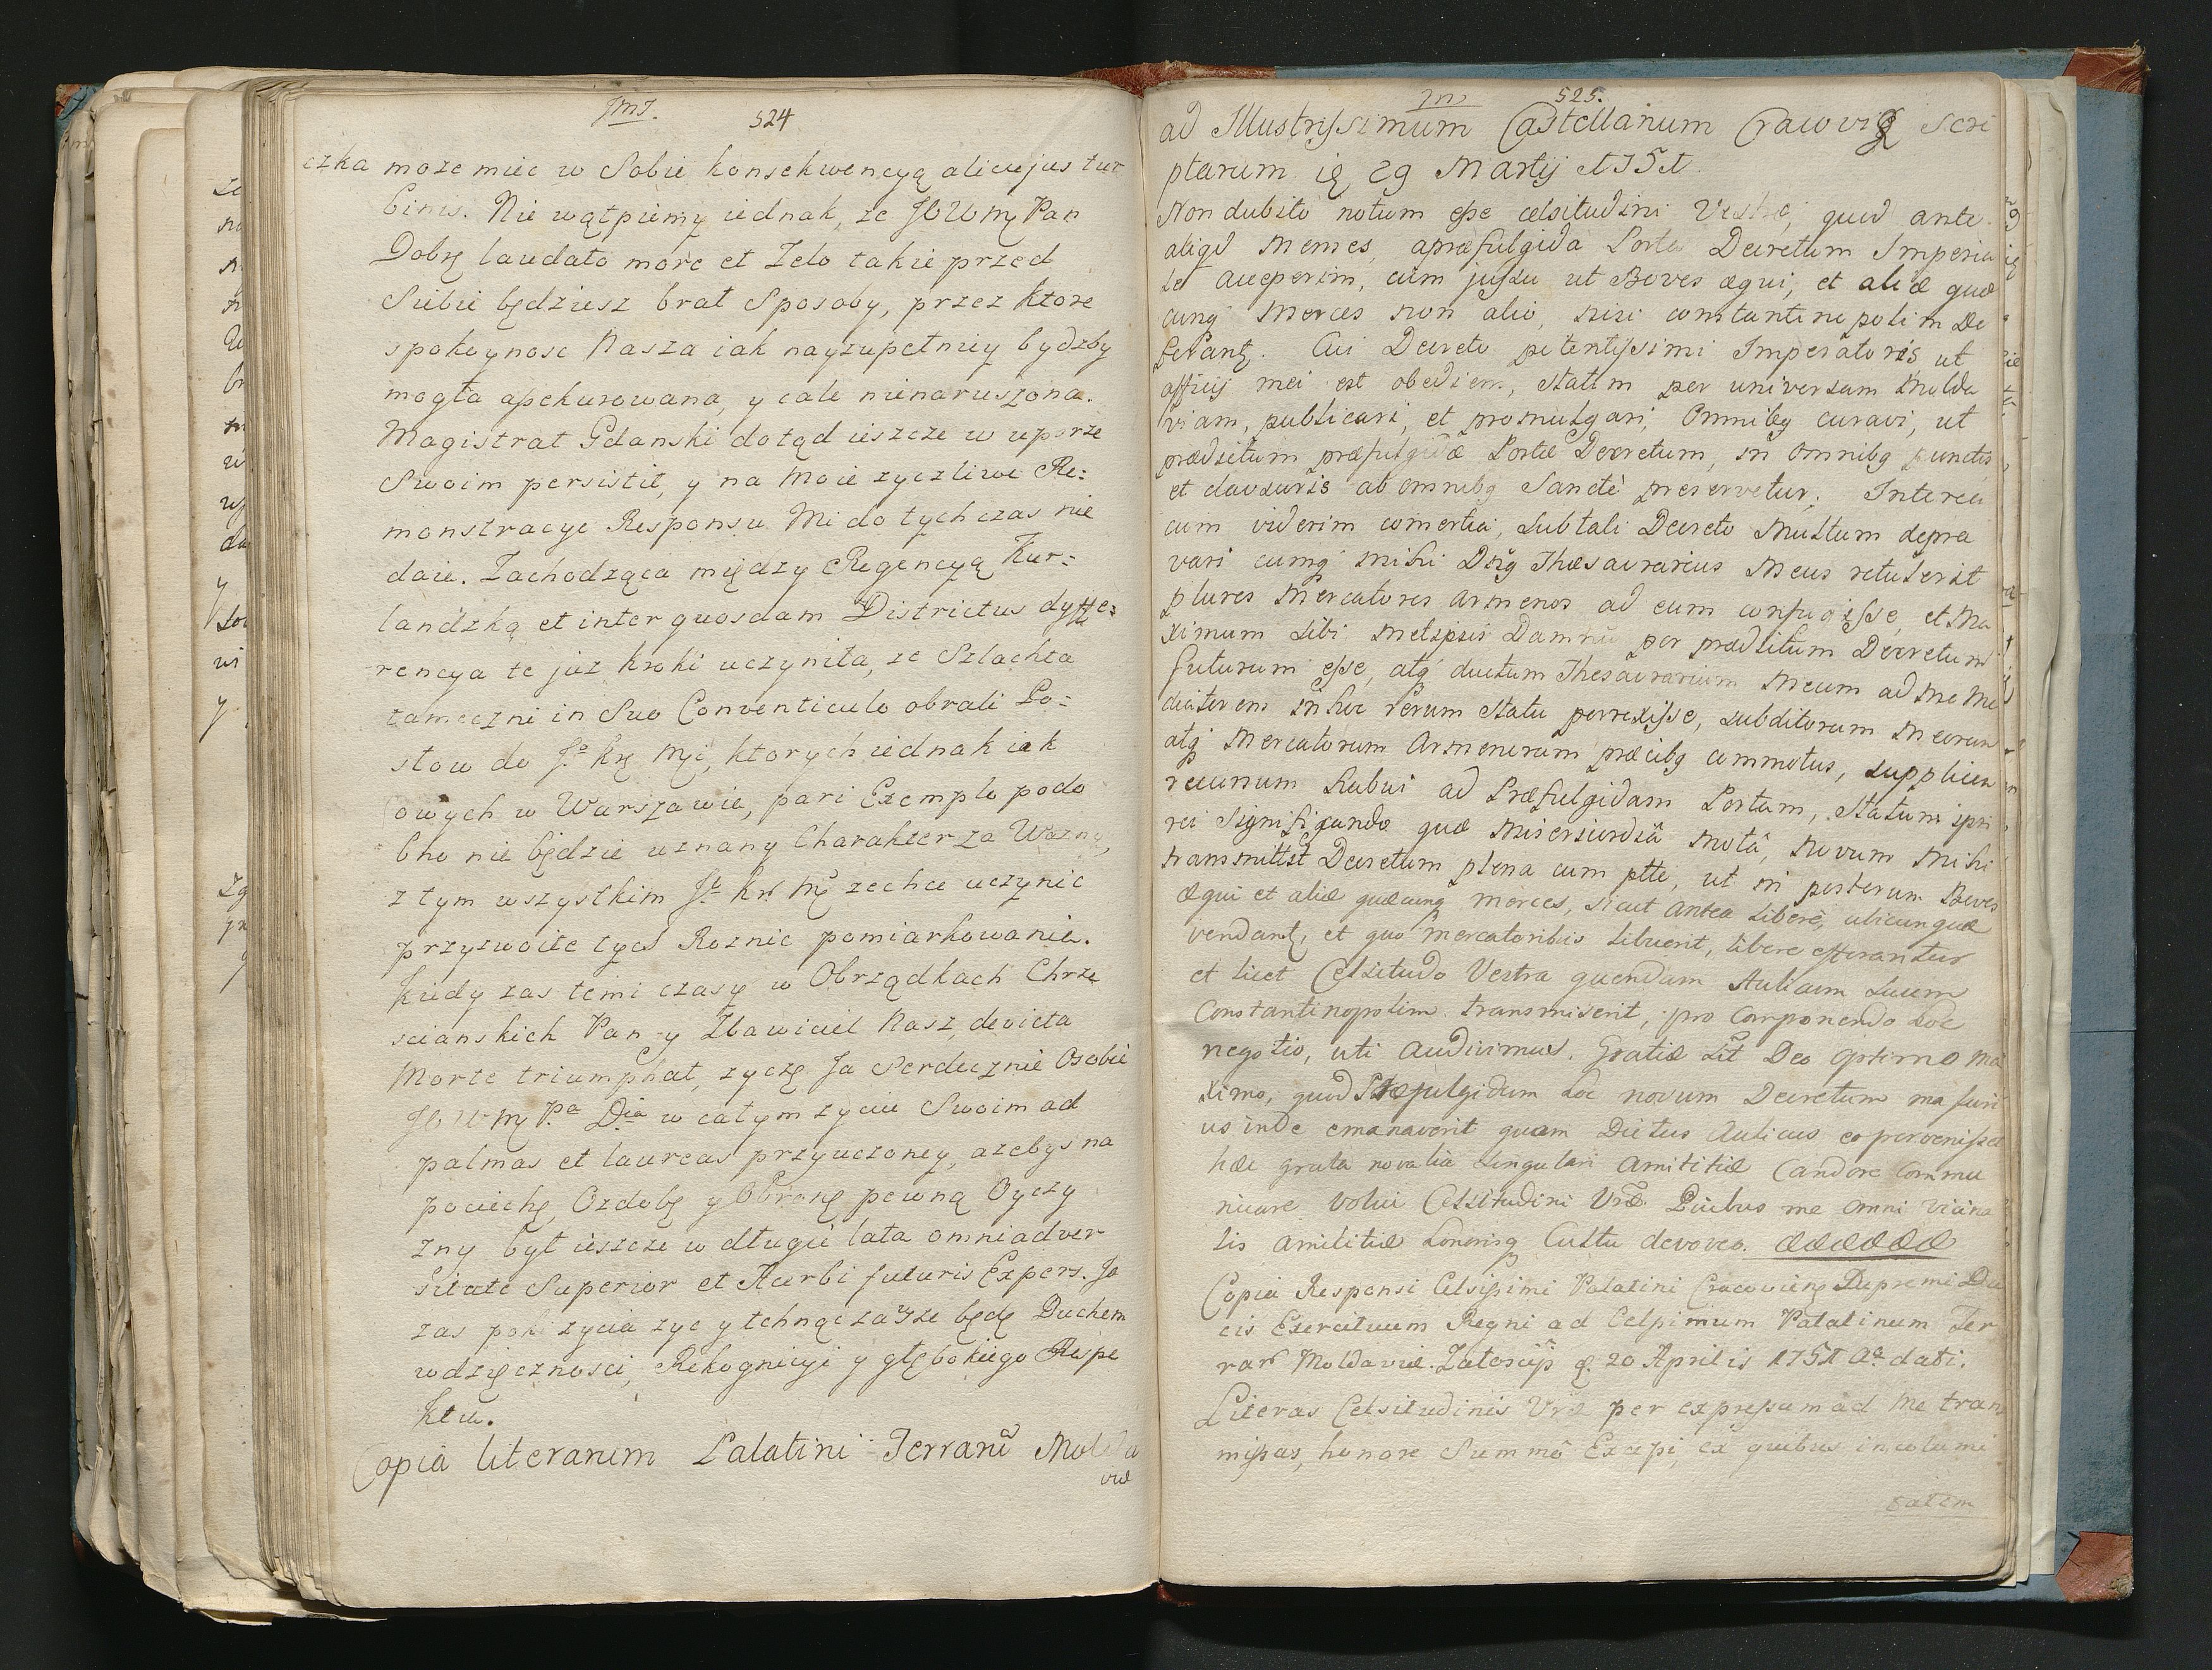 JmJ. 524
czka moze miec w Sobie konsekwencyą alicujus tur
binis. Nie wątpiemy iednak, ze JW WMę Pan
Dobrę laudato more et Zelo takie przed
Siebie będziesz brał Sposoby, przez ktore
spokoynosc Nasza iak nayzupełniey bydzby
mogła assekurowana, y cale nienaruszona.
Magistrat Gdanski dotąd ieszcze w uporze
Swoim persistit, y na Moie zyczliwe Re:
monstracye Responsu Mi do tych czas nie
daie. Zachodząca między Regencyą Kur:
landzką et inter quosdam Districtus dyffe:
rencya te juz kroki uczyniła, ze Szlachta
tameczni in Suo Conventiculo obrali Po:
słow do Jo Krę Mci, ktorych iednak iak
owych w Warszawie, pari Exemplo podo
bno nie będzie uznany Charakter za Wazny,
z tym wszystkim Jo Kr Mę zechce uczynic
przyzwoite tych Roznic pomiarkowanie.
Kiedy zas temi czasy w Obrządkach Chrze
scianskich Pan y Zbawiciel Nasz, devicta
Morte triumphat, zyczę Ja Serdecznie Osobie
JW WMę Pa Dia w całym zyciu Swoim ad
palmas et laureas przyuczoney, azebys na
pociechę, Ozdobę y Obronę pewną Oyczy
zny był ieszcze w długie lata omni adver
sitate Superior et Acerbi futuris Expers. Ja
zas poki zycia zyc y tchnąc zawsze będę Duchem
wdzięcznosci, Rekognicyi y głębokiego Respe
ktu.
Copia literarum Palatini Terraru Molda
viæ
Jm 525.
ad Illustrissimum Castellanum Cracovię scri
ptarum ię 29 Martij 1751.
Non dubito notum esse celsitudini Vestræ, quid ante
aliqd Menses, a præfulgida Porta Decretum Imperia
le acceperim, cum jussu ut Boves æqui, et aliæ quæ
cunq Merces non alio, nisi constantinopolim de
ferantę. Cui Decreto potentissimi Imperatoris ut
officij mei est obediens, statim per universam Molda
viam, publicari, et promulgari, Omnibq curavi, ut
prædsitum præfulgidæ Portæ Decretum, in Omnibq punctis
et clausuris ab omnibq Sancte preservetur. Interea
cum viderim comertia, sub tali Decreto Multum depra
vari cumq mihi Dñq Thæsaurarius Meus retulerit
plures Mercatores Armenos ad eum confugisse, et Ma
ximum sibi Metipsis Damnũ per prædsitum Decretum
futurum esse, atq dictum Thesaurarium Meum ad Me Me
diatorem in hoc rerum statu perrexisse, subditorum Meorum
atq Mercatorum Armenorum præcibq commotus, supplicem
recursum habui ad Præfulgidam Portam, Statum ipsi
rei Significando quæ Misericordiâ motâ, Novum Mihi
transmittit Decretum plena cum ptte, ut in posterum Boves
æqui et aliæ quæcunq merces, sicut Antea libere, ubicunque
vendantę, et quo Mercatoribus libuerit, libere efferantur
et licet Celsitudo Vestra quendam Aulicum suum
Constantinopolim transmiserit, pro Componendo hoc
negotio, uti Audivimus. Gratiæ sit Deo Optimo Ma
ximo, quod Præfulgidum hoc novum Decretum matur
us inde emanaverit quam Dictus Aulicus eo pervenisset
hæc grata novalia singulari Amicitiæ Candore Commu
nicare volui Celsitudini Vræ. Quibus me omni vicina
lis Amicitiæ honorisq Cultu devoveo. ææææææ
Copia Responsi Celsissimi Palatini Cracovienę Supremi Du
cis Exercituum Regni ad Celssimum Palatinum Ter
rarũ Moldaviæ. Zatosciis ę. 20 Aprilis 1751 Ao dati.
Literas Celsitudinis Vræ per expressum ad Me trans
missas, honore Summô Excepi, ex quibus incolumi
tatem